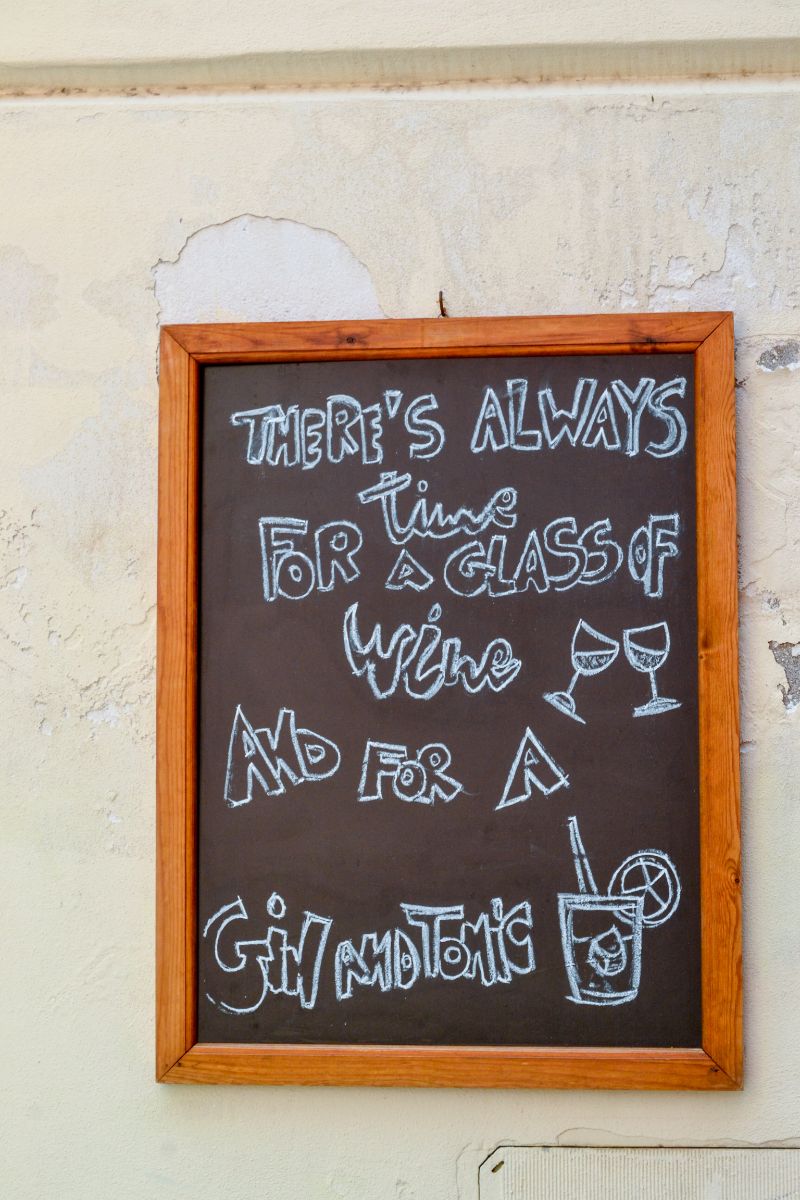 THERE'S ALWAYS
time
FOR A GLASS OF
wine
AND FOR A
GiN AND TONiC